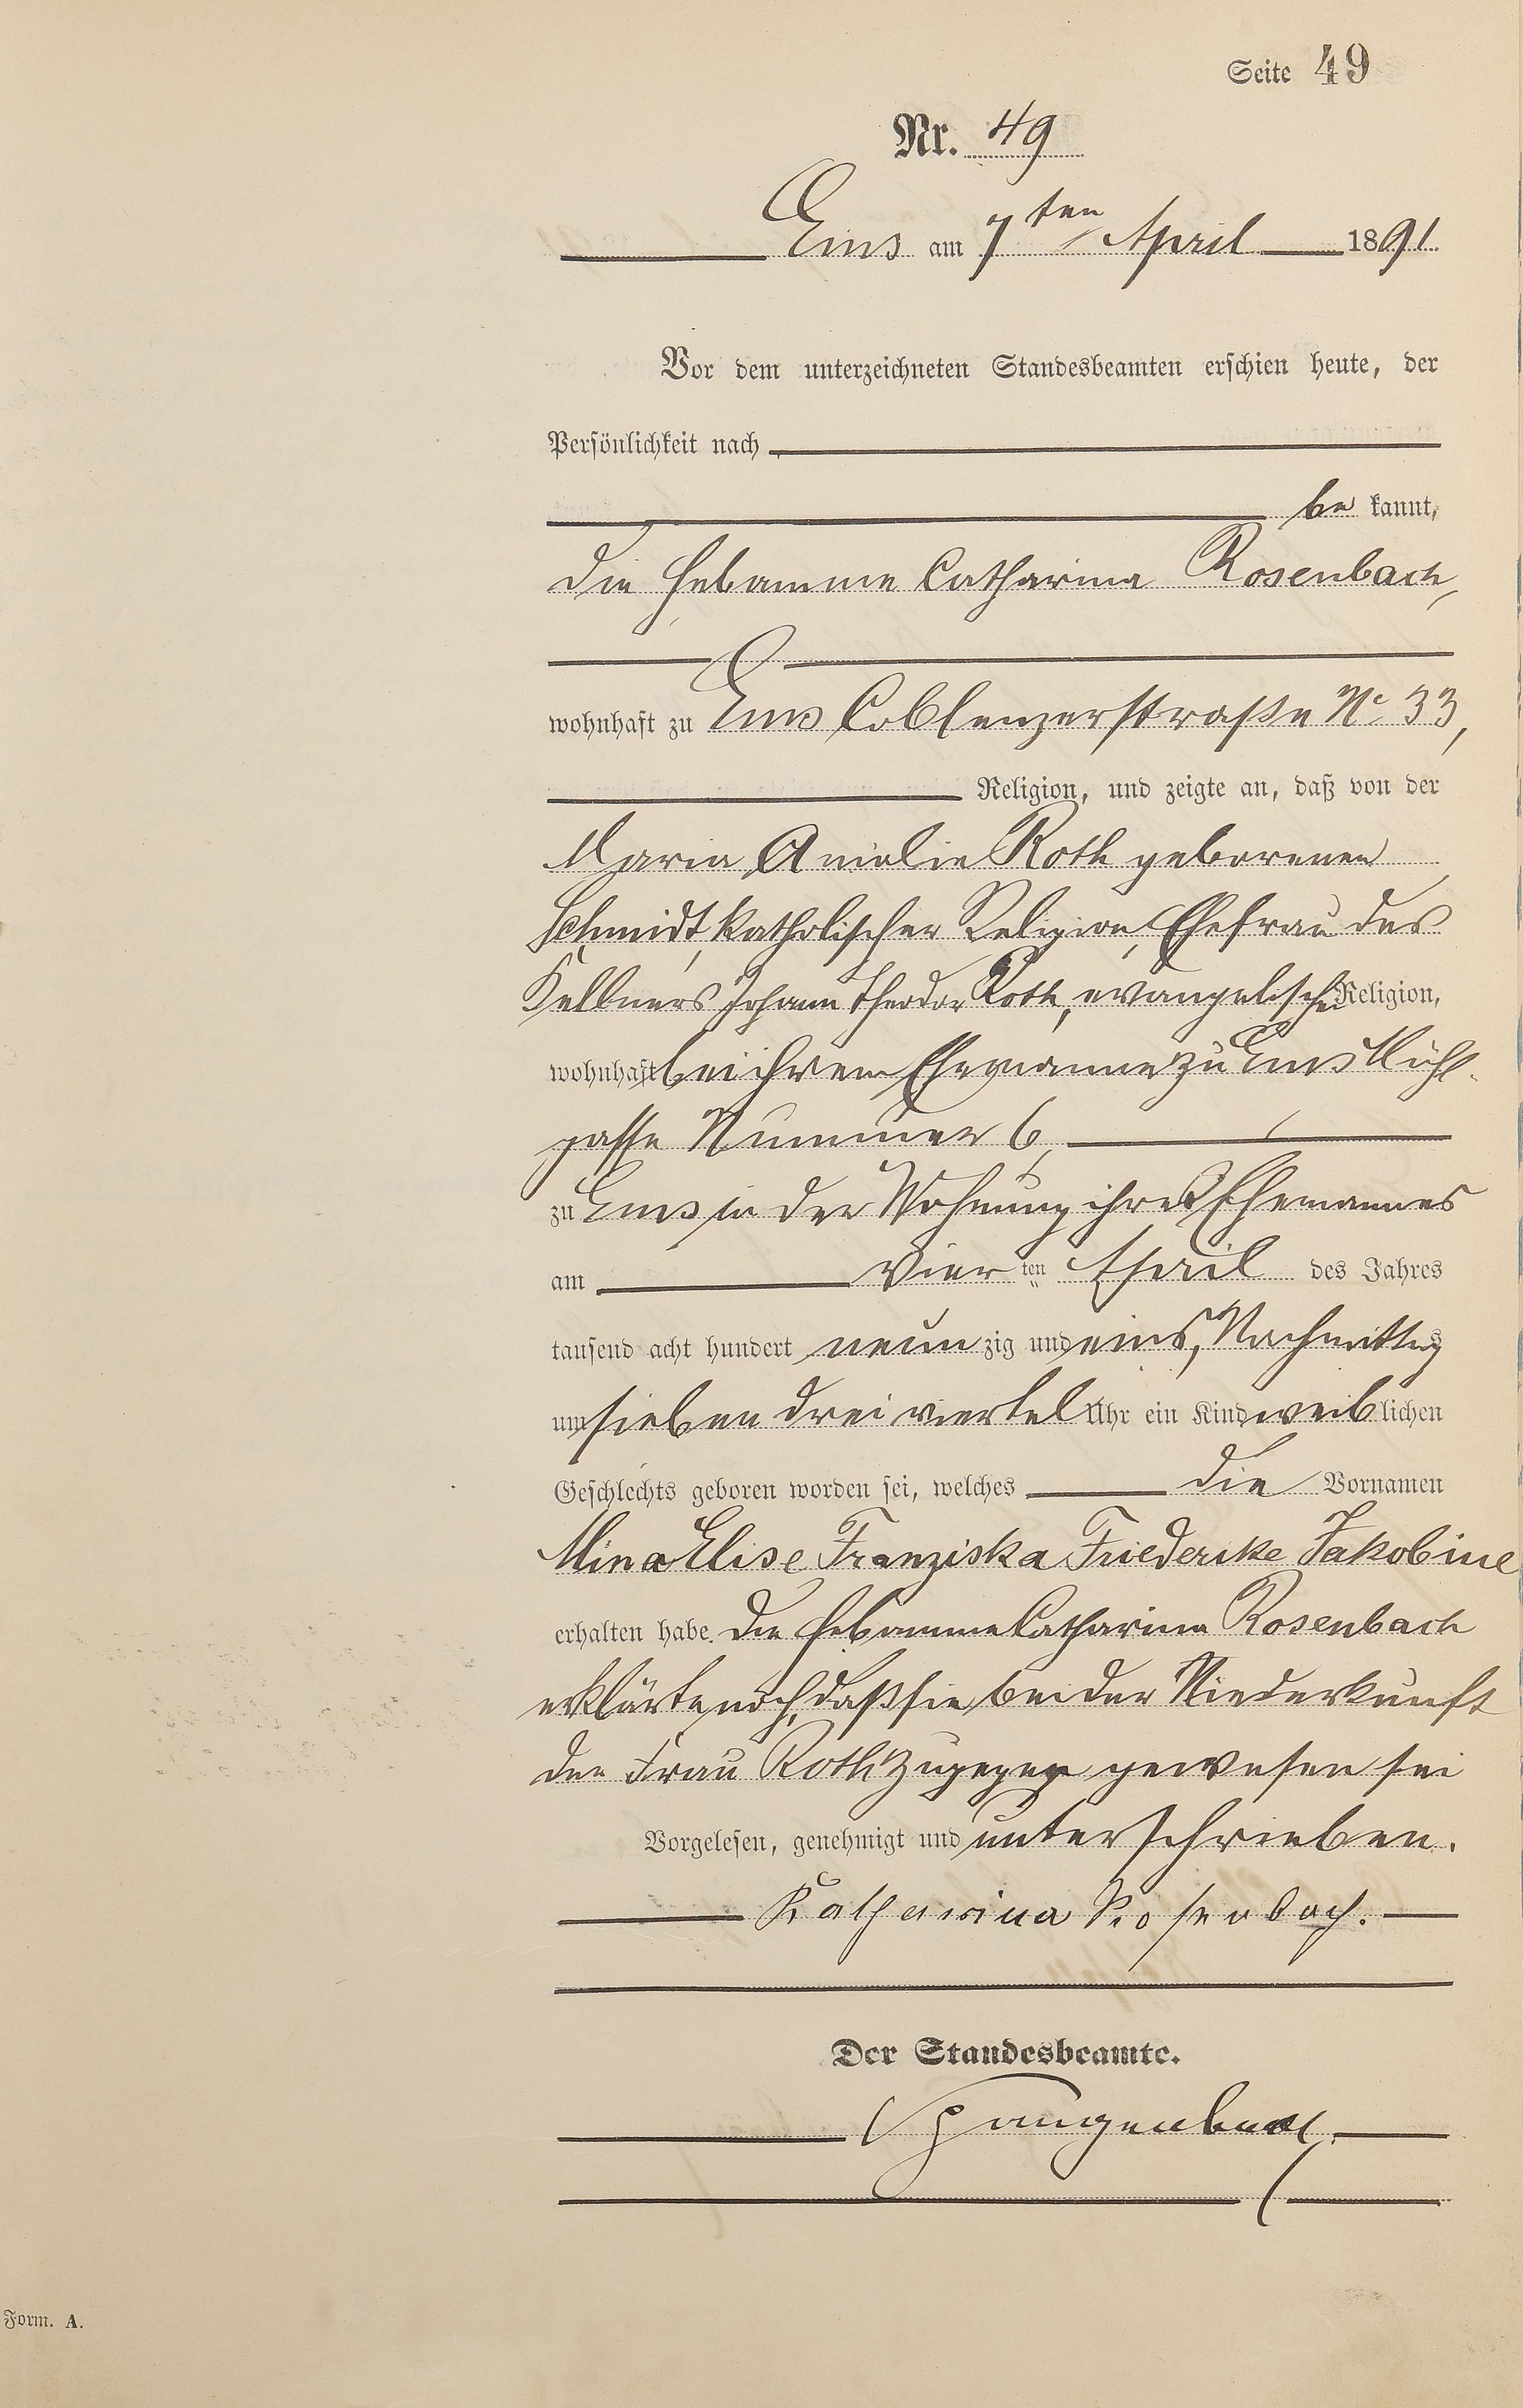 Seite 49
Nr. 49
Ems am 7ten April 1891
Vor dem unterzeichneten Standesbeamten erschien heute, der
Persönlichkeit nach
be kannt,
die Hebamme Catharina Rosenbach,
wohnhaft zu Ems Coblenzerstraße No 33,
Religion, und zeigte an, daß von der
Maria Amalie Roth geborenen
Schmidt, katholischer Religion, Ehefrau des
Kellners Johann Theodor Roth, evangelischer Religion,
wohnhaft bei ihrem Ehemanne zu Ems Mühl-
gasse Nummer 6,
zu Ems in der Wohnung ihres Ehemannes
am vier ten April des Jahres
tausend acht hundert neun zig und eins, Nachmittags
um sieben drei viertel Uhr ein Kind weib lichen
Geschlechts geboren worden sei, welches die Vornamen
Mina Elise Franziska Friederike Jakobine
erhalten habe. Die Hebamme Catharina Rosenbach
erklärte noch, daß sie bei der Niederkunft
der Frau Roth zugegen gewesen sei
Vorgelesen, genehmigt und unterschrieben.
Katharina Rosenbach.
Der Standesbeamte.
Spangenberg
Form. A.